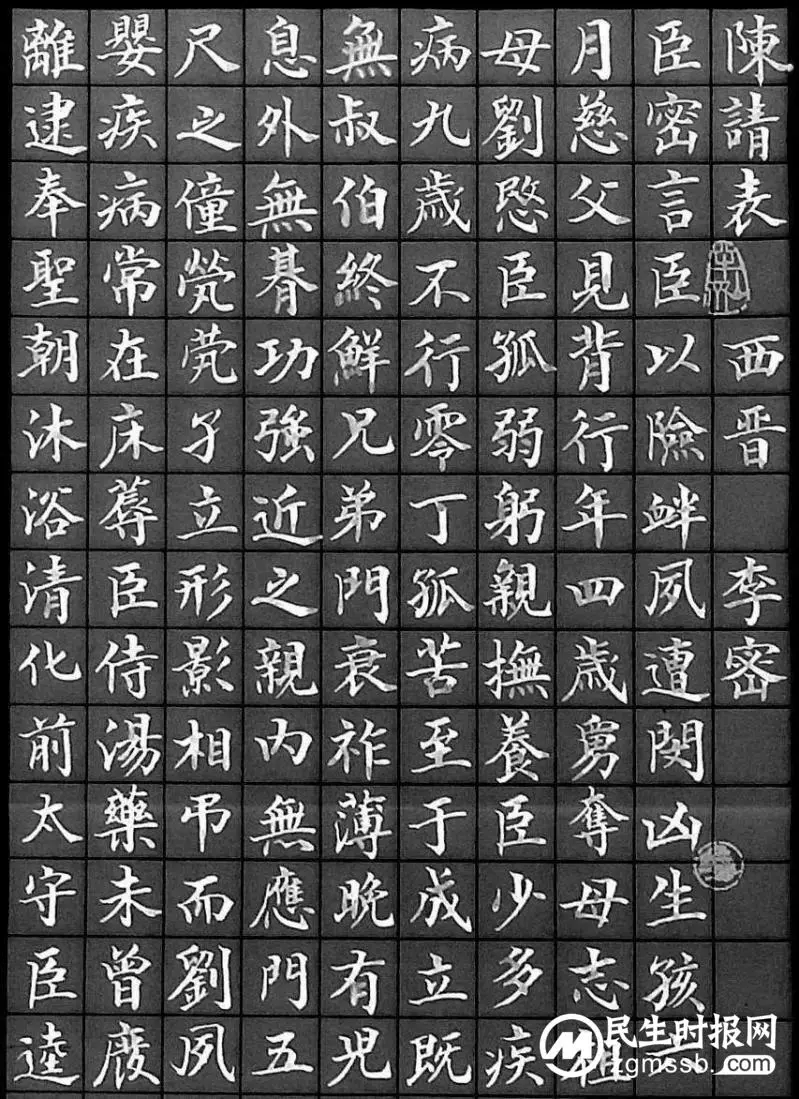 陳請表 西晋 李密
臣密言臣以險衅夙遭閔凶生孩
月慈父見背行年四歲舅奪母志祖
母劉愍臣孤弱躬親撫養臣少多疾
病九歲不行零丁孤苦至于成立既
無叔伯終鮮兄弟門衰祚薄晚有兒
息外無朞功強近之親内無應門五
尺之僮煢煢孑立形影相吊而劉夙
嬰疾病常在床蓐臣侍湯藥未曾廢
離逮奉聖朝沐浴清化前太守臣逵
民生时报网
zgmssb.com